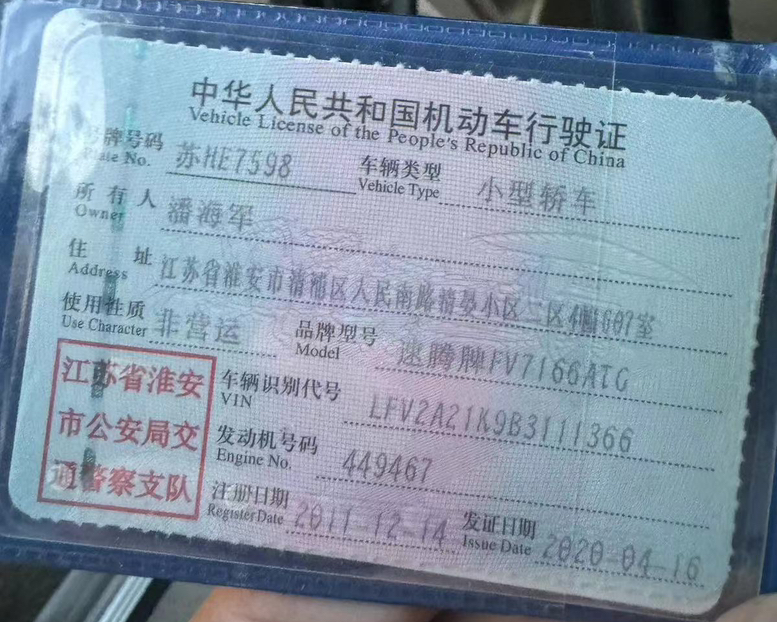 中华人民共和国机动车行驶证
Vehicle License of the People's Republic of China
号牌号码 苏HE7598 车辆类型 小型轿车
Plate No. Vehicle Type
所有人 潘海军
Owner
住址 江苏省淮安市清浦区人民南路清晏小区二区4幢607室
Address
使用性质 非营运 品牌型号 速腾牌FV7166ATG
Use Character Model
江苏省淮安 车辆识别代号 LFV2A21K9B3111366
VIN
市公安局交 发动机号码 449467
Engine No.
通警察支队 注册日期 2011-12-14 发证日期 2020-04-16
Register Date Issue Date